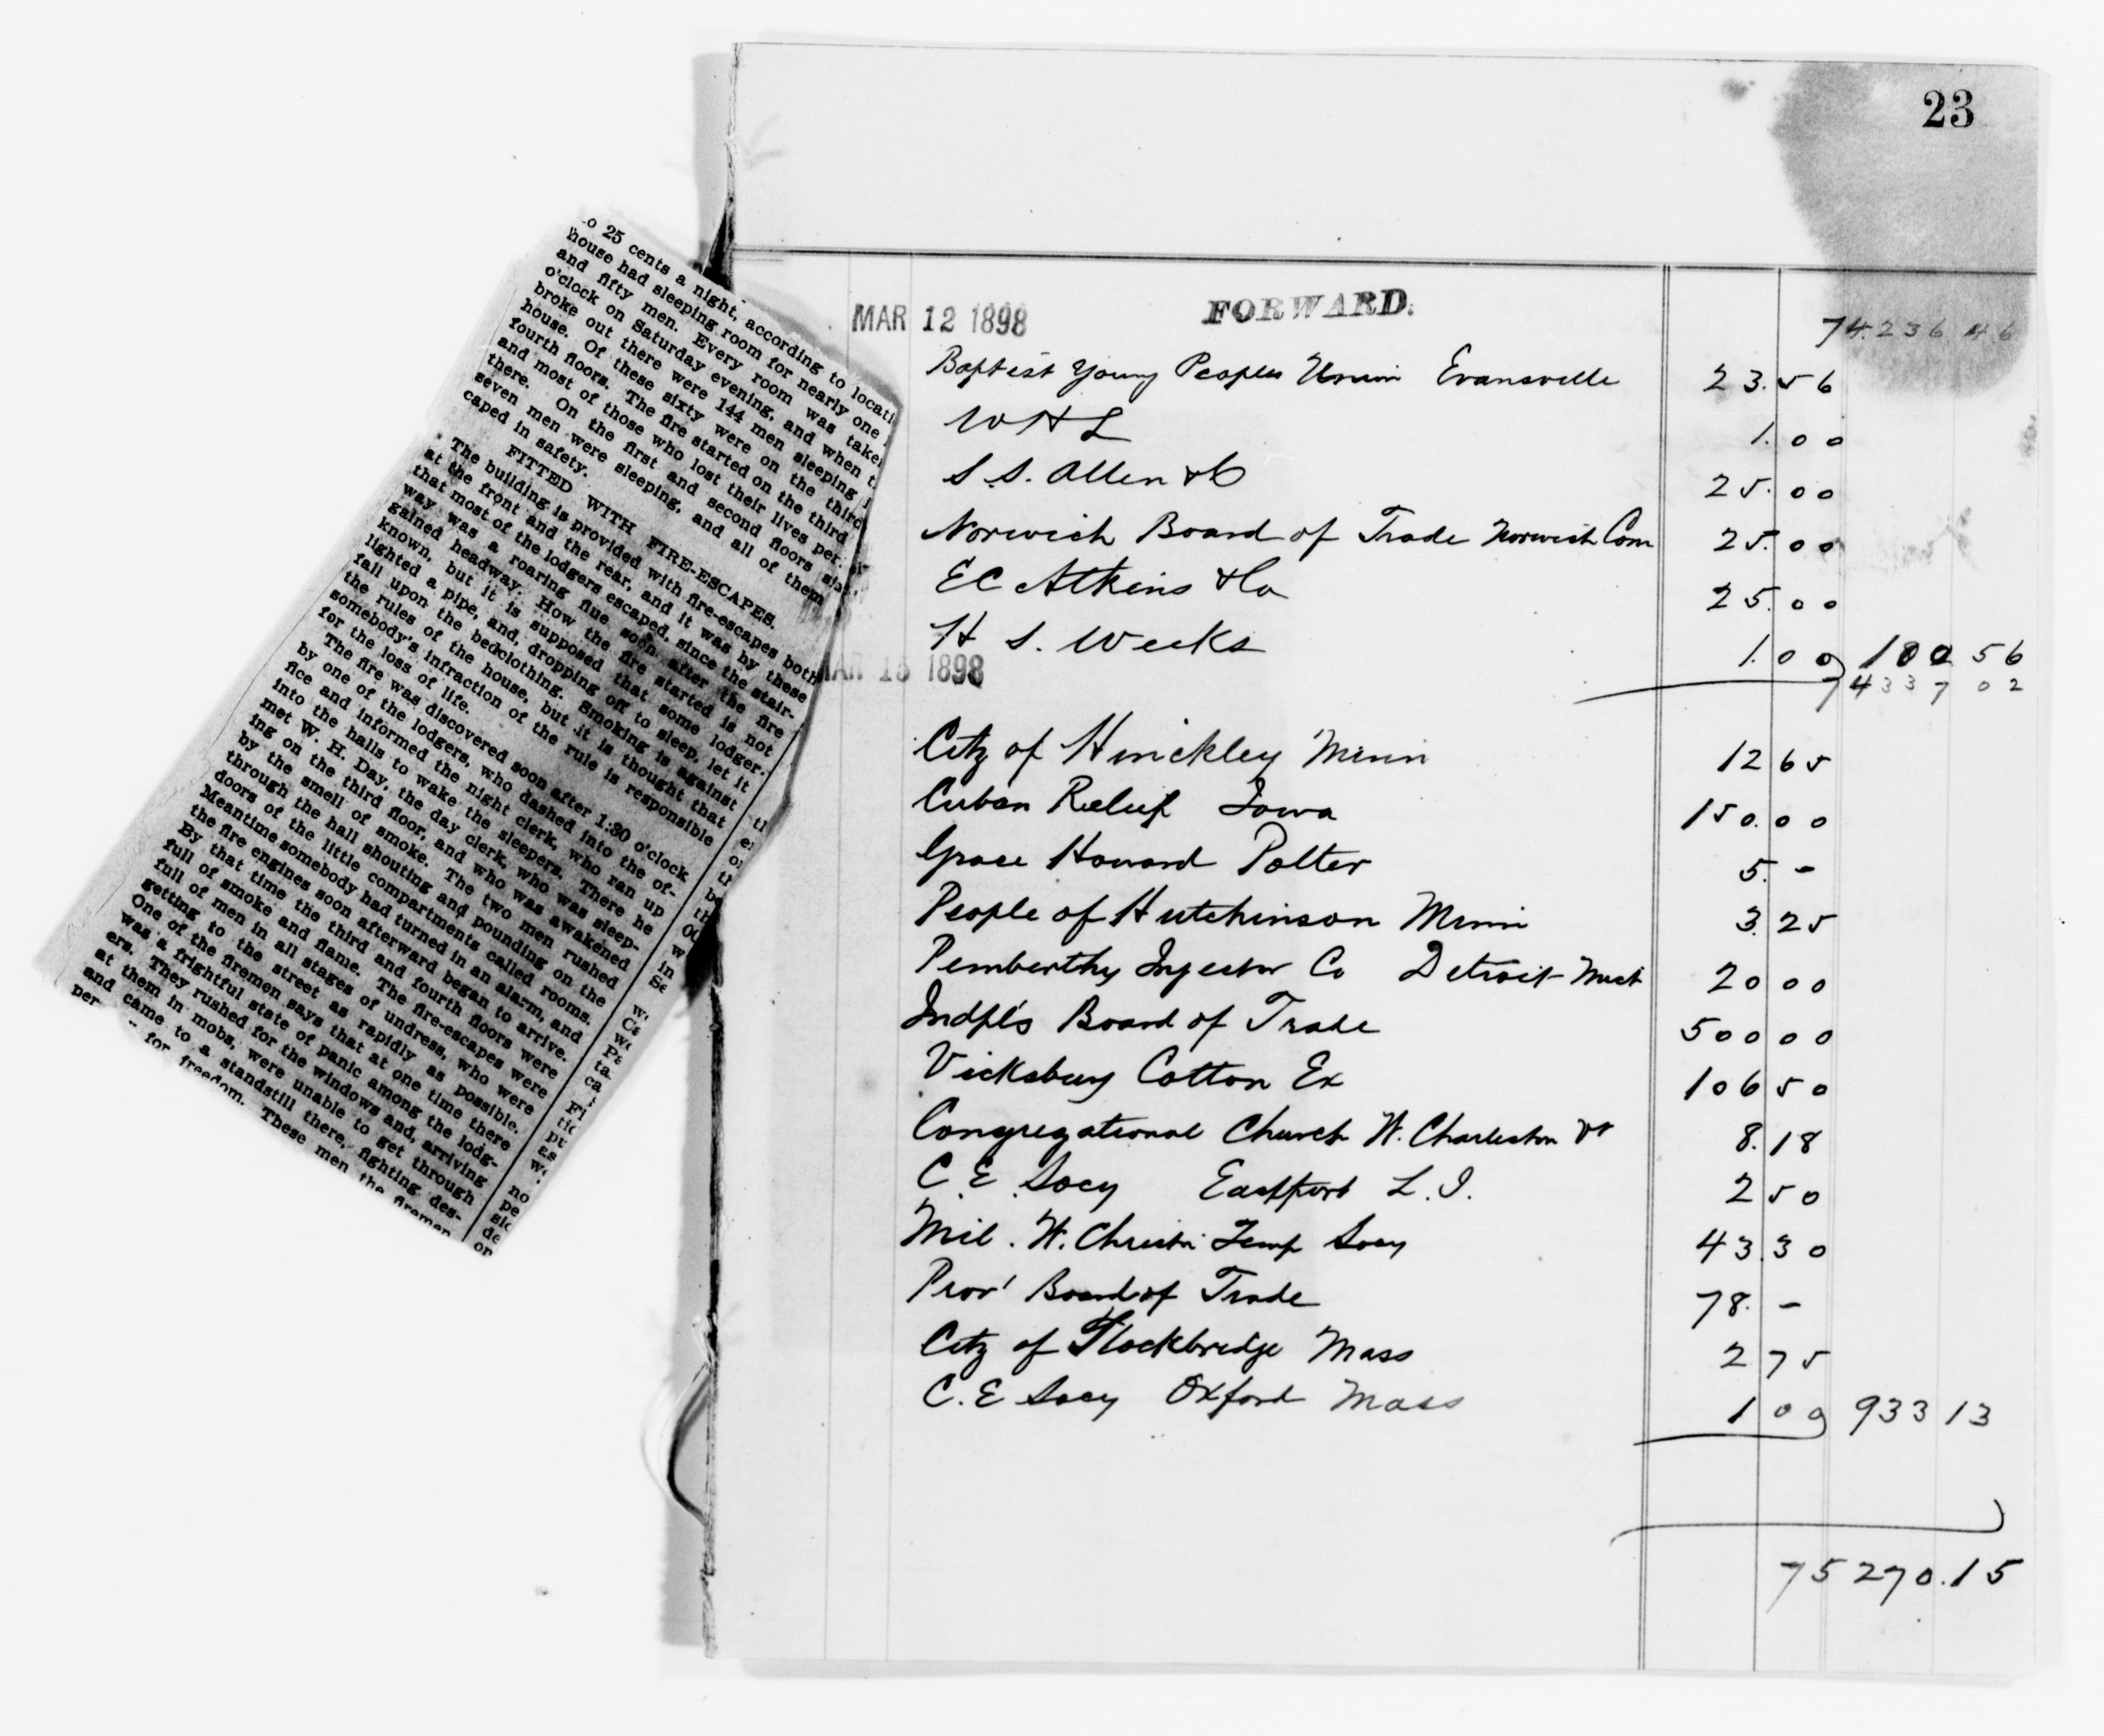 25 cents a night, according to
house had sleeping room for nearly one
and fifty men. Every room was
o'clock on Saturday evening, and when
broke out there were 144 men sleeping
house. Of these sixty were on the third
fourth floors. The fire started on the third
and most of those who lost their lives per-
there. On the first and second floors
seven men were sleeping, and all of them
caped in safety.
FITTED WITH FIRE-ESCAPES.
The building is provided with fire-escapes both
at the front and the rear, and it was by these
that most of the lodgers escaped, since the stair-
way was a roaring flue soon after the fire
gained headway. How the fire started is not
known, but it is supposed that some lodger
lighted a pipe, and, dropping off to sleep, let it
fall upon the bedclothing. Smoking is against
the rules of the house, but it is thought that
somebody's infraction of the rule is responsible
for the loss of life.
The fire was discovered soon after 1:30 o'clock
by one of the lodgers, who dashed into the of-
fice and informed the night clerk, who ran up
into the halls to wake the sleepers. There he
met W. H. Day, the day clerk, who was sleep-
ing on the third floor, and who was awakened
by the smell of smoke. The two men rushed
through the hall shouting and pounding on the
doors of the little compartments called rooms.
Meantime somebody had turned in an alarm, and
the fire engines soon afterward began to arrive.
By that time the third and fourth floors were
full of smoke and flame. The fire-escapes were
full of men in all stages of undress, who were
getting to the street as rapidly as possible.
One of the firemen says that at one time there
was a frightful state of panic among the lodg-
ers. They rushed for the windows and, arriving
at them in mobs, were unable to get through
and came to a standstill there, fighting des-
per
for freedom. These men the firemen
23
MAR 12 1898 FORWARD. 74236 46
Baptist Young Peoples Union Evansville 23.56
W H L 1.00
S. S. Allen & Co 25.00
Norwich Board of Trade Norwich Conn 25.00
E C Atkins & Co 25.00
H S. Weeks 1.00 100 56
MAR 15 1898 74337 02
City of Hinckley Minn 12 65
Cuban Relief Iowa 150.00
Grace Howard Potter 5. -
People of Hutchinson Minn 3.25
Pemberthy Injector Co Detroit Mich 20 00
Indpl's Board of Trade 500 00
Vicksburg Cotton Ex 106 50
Congregational Church W. Charleston Vt 8.18
C. E. Socy Eastport L. I. 2 50
Mil. W. Christn Temp Socy 43.30
Prov' Board of Trade 78. -
City of Stockbridge Mass 2 75
C. E Socy Oxford Mass 1 00 933 13
75270.15